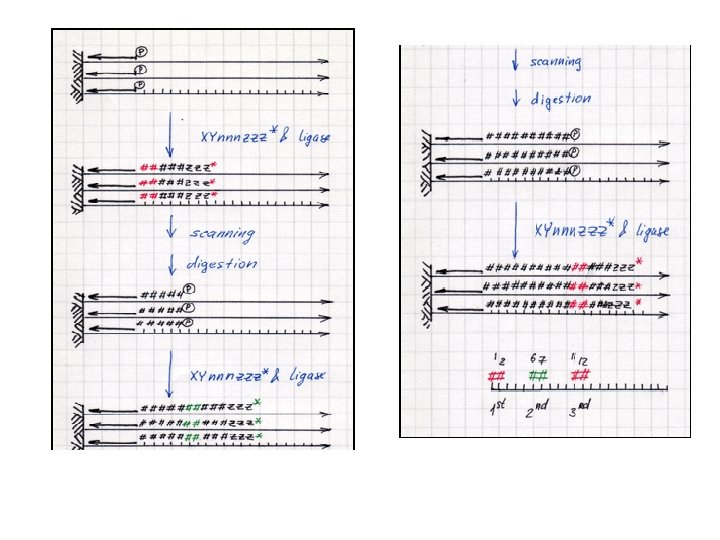 P
P
P
XYnnnzzz* & ligase
#####zzz*
#####zzz*
#####zzz*
scanning
digestion
#####P
#####P
#####P
XYnnnzzz* & ligase
##########zzz*
##########zzz*
##########zzz*
scanning
digestion
##########P
##########P
##########P
XYnnnzzz* & ligase
###############zzz*
###############zzz*
###############zzz*
1 2 6 7 11 12
## ## ##
1st 2nd 3nd